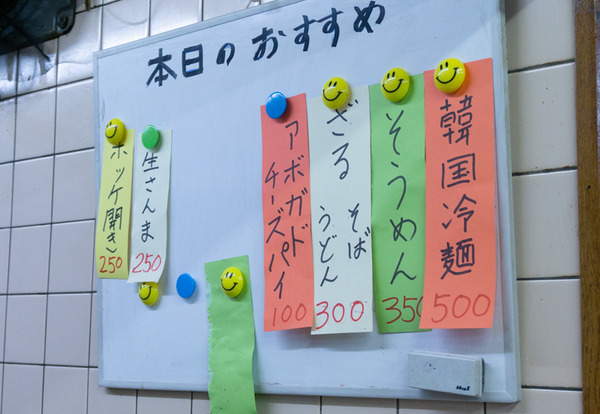 本日のおすすめ
韓国冷麺
500
そうめん
350
ざる そば
うどん
300
アボガド
チーズパイ
100
生さんま
250
ホッケ開き
250